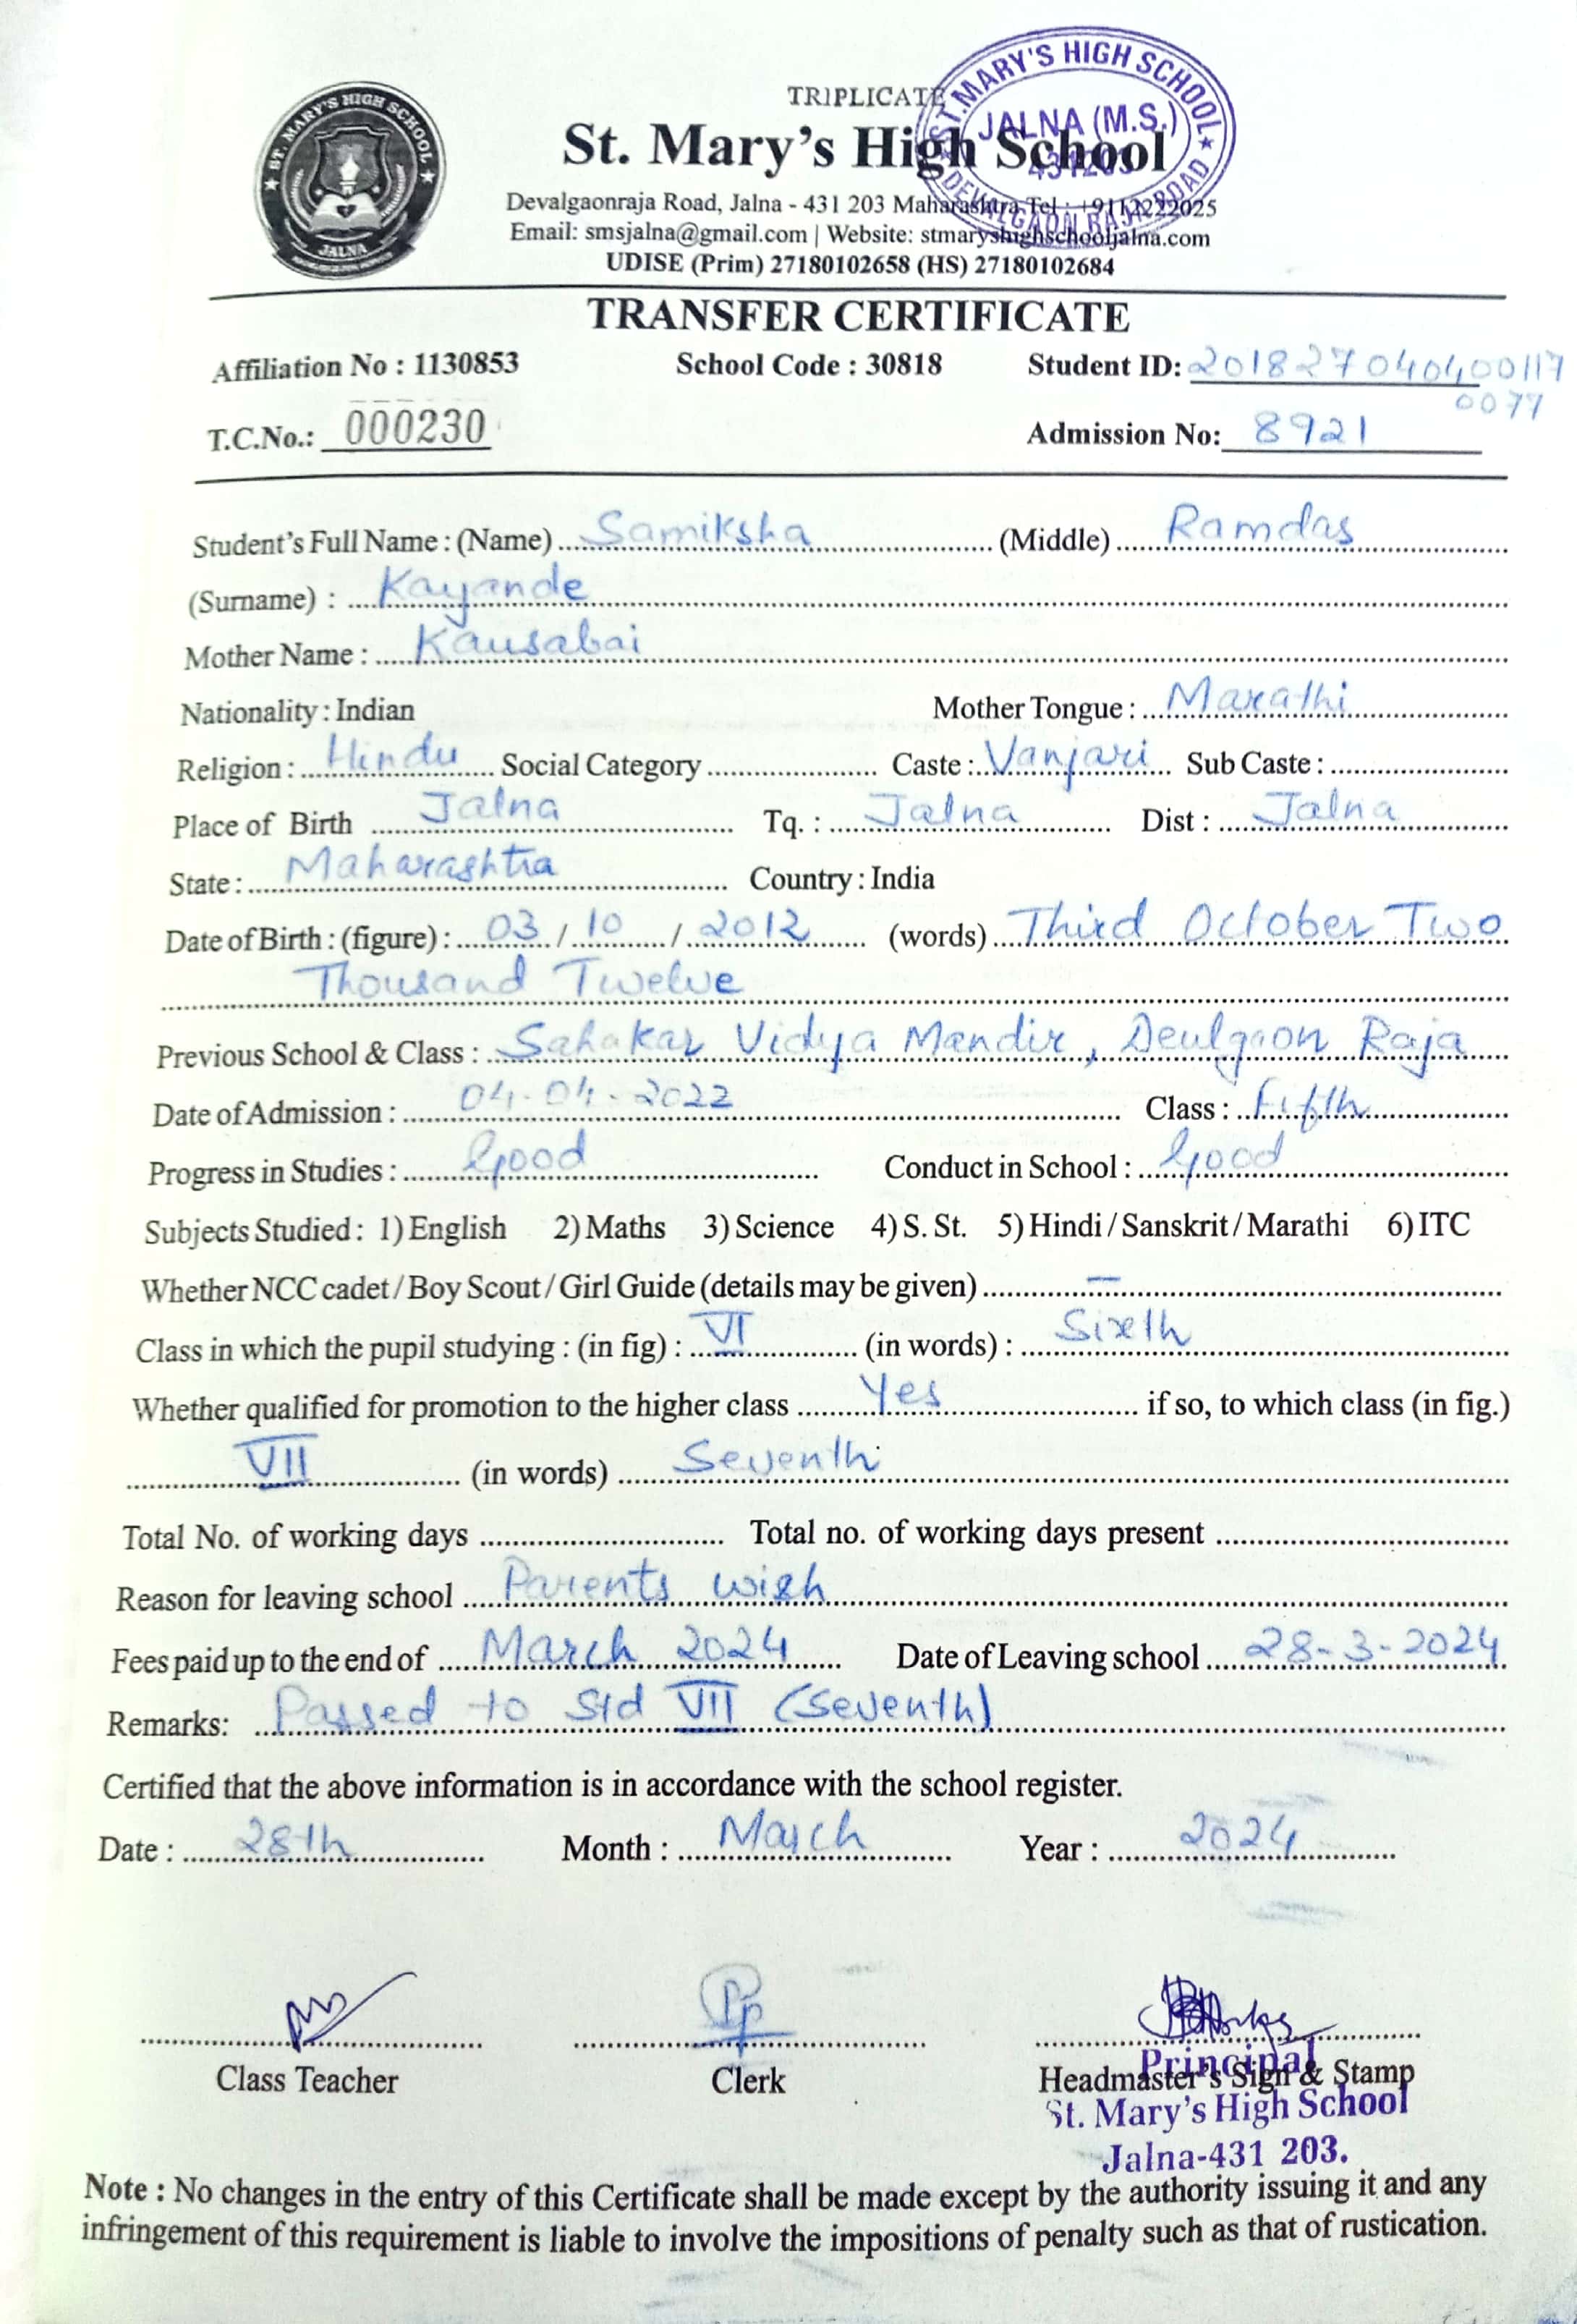 ST. MARY'S HIGH SCHOOL
JALNA
ST. MARY'S HIGH SCHOOL
JALNA (M.S.)
431203
DEVALGAON RAJA ROAD
TRIPLICATE
St. Mary's High School
Devalgaonraja Road, Jalna - 431 203 Maharashtra Tel.: +9112222025
Email: smsjalna@gmail.com | Website: stmaryshighschooljalna.com
UDISE (Prim) 27180102658 (HS) 27180102684
TRANSFER CERTIFICATE
Affiliation No : 1130853 School Code : 30818 Student ID: 201827040400117
0077
T.C.No.: 000230 Admission No: 8921
Student's Full Name : (Name) Samiksha (Middle) Ramdas
(Surname) : Kayande
Mother Name : Kausabai
Nationality : Indian Mother Tongue : Marathi
Religion : Hindu Social Category Caste : Vanjari Sub Caste :
Place of Birth Jalna Tq. : Jalna Dist : Jalna
State : Maharashtra Country : India
Date of Birth : (figure) : 03 / 10 / 2012 (words) Third October Two
Thousand Twelve
Previous School & Class : Sahakar Vidya Mandir, Deulgaon Raja
Date of Admission : 04-04-2022 Class : Fifth
Progress in Studies : Good Conduct in School : Good
Subjects Studied : 1) English 2) Maths 3) Science 4) S. St. 5) Hindi / Sanskrit / Marathi 6) ITC
Whether NCC cadet / Boy Scout / Girl Guide (details may be given) —
Class in which the pupil studying : (in fig) : VI (in words) : Sixth
Whether qualified for promotion to the higher class Yes if so, to which class (in fig.)
VII (in words) Seventh
Total No. of working days Total no. of working days present
Reason for leaving school Parents wish
Fees paid up to the end of March 2024 Date of Leaving school 28-3-2024
Remarks: Passed to Std VII (Seventh)
Certified that the above information is in accordance with the school register.
Date : 28th Month : March Year : 2024
Class Teacher Clerk Headmaster's Sign & Stamp
Principal
St. Mary's High School
Jalna-431 203.
Note : No changes in the entry of this Certificate shall be made except by the authority issuing it and any
infringement of this requirement is liable to involve the impositions of penalty such as that of rustication.